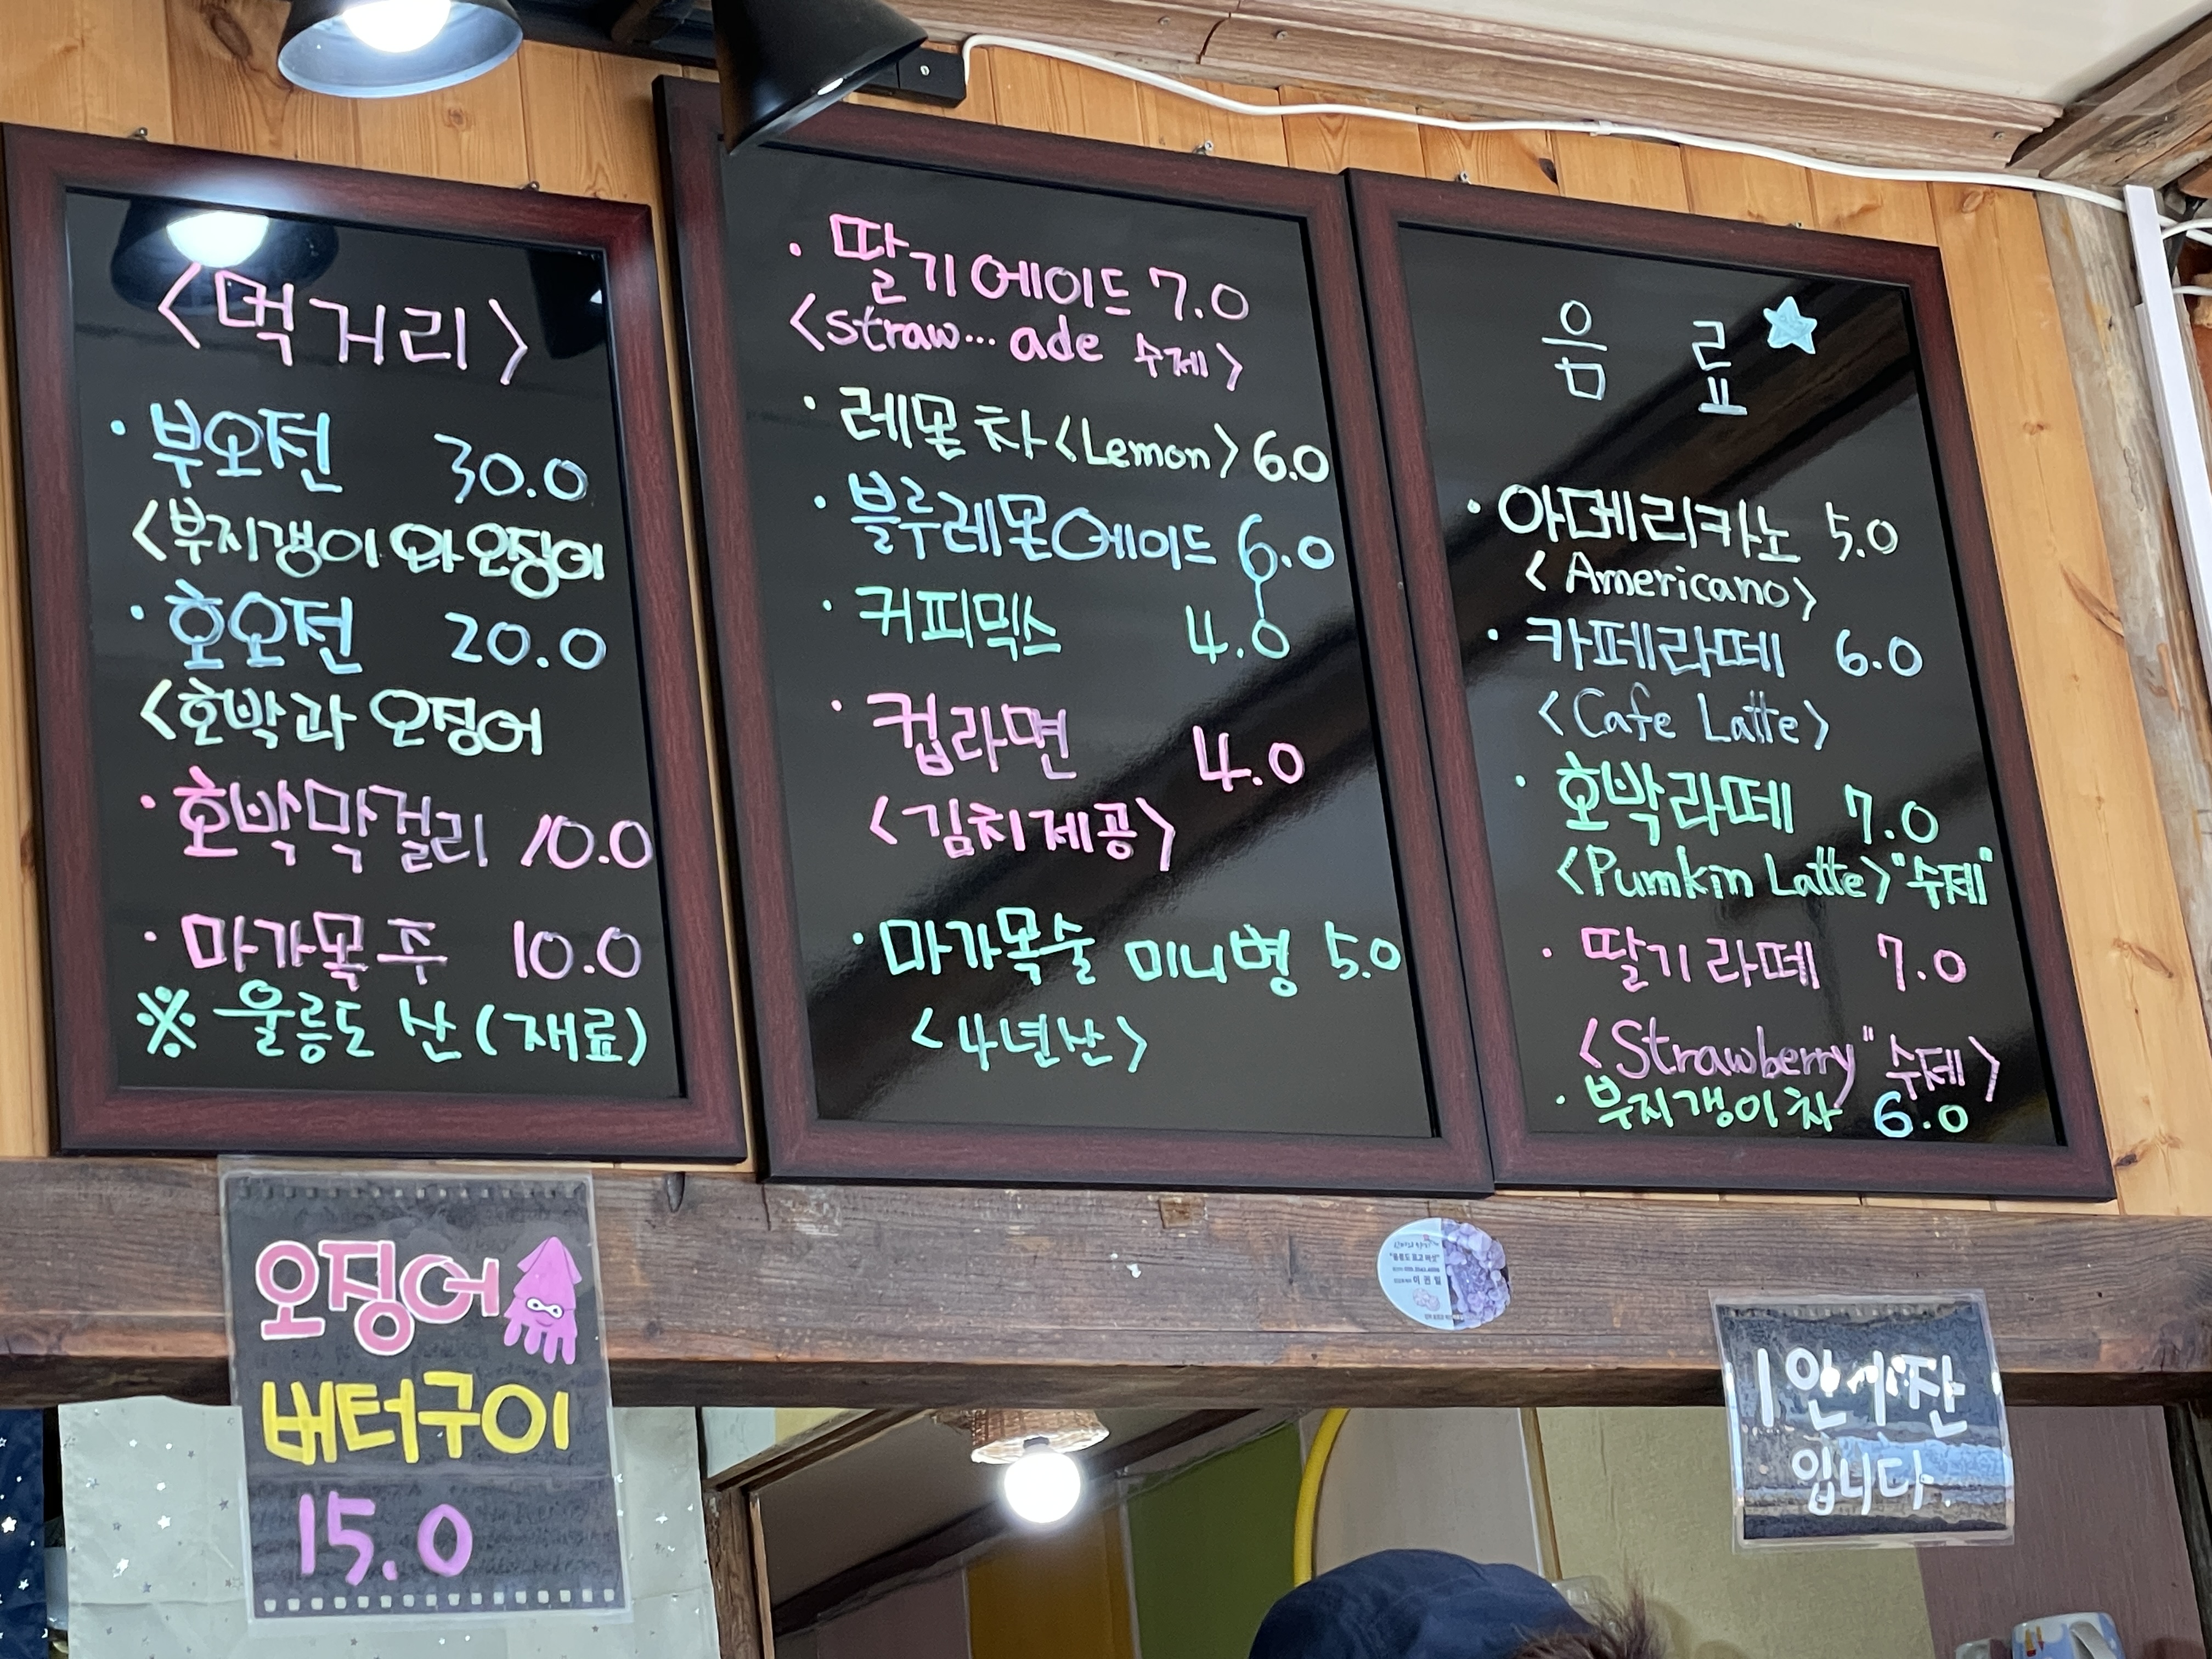 <먹거리>
· 부오전 30.0
<부지갱이와 오징어
· 호오전 20.0
<호박과 오징어
· 호박막걸리 10.0
· 마가목주 10.0
※ 울릉도 산 (재료)
· 딸기에이드 7.0
<straw... ade 수제>
· 레몬차 <Lemon> 6.0
· 블루레몬에이드 6.0
· 커피믹스 4.0
· 컵라면 4.0
<김치제공>
· 마가목술 미니병 5.0
<4년산>
음료
· 아메리카노 5.0
<Americano>
· 카페라떼 6.0
<Cafe Latte>
· 호박라떼 7.0
<Pumkin Latte> "수제"
· 딸기라떼 7.0
<Strawberry "수제>
· 부지갱이차 6.0
오징어
버터구이
15.0
이권필
1인 1잔
입니다.